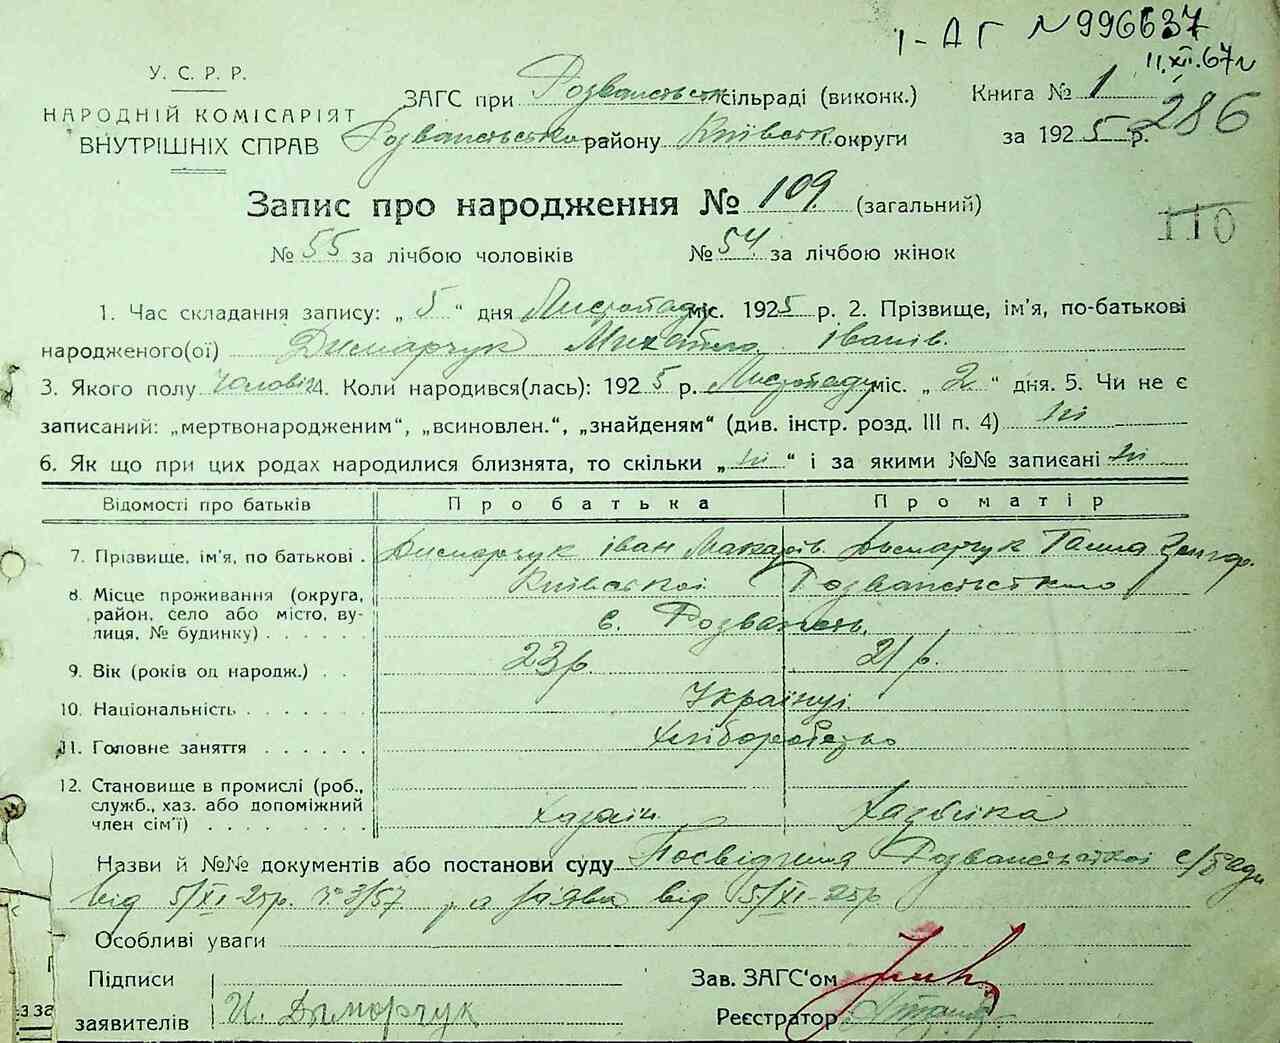 І-АГ №996637
11.XII.67г
У. С. Р. Р.
НАРОДНІЙ КОМІСАРІЯТ
ВНУТРІШНІХ СПРАВ
ЗАГС при сільраді (виконк.)
району Київськ. округи
Книга № 1
за 1925 р.
286
Запис про народження № 109. (загальний)
110
№ 55 за лічбою чоловіків № 54. за лічбою жінок
1. Час складання запису: „ 5 “ дня Листопаду міс. 1925 р. 2. Прізвище, ім'я, по-батькові
народженого(ої) Димарчук Михайло Іванів.
3. Якого полу чоловіч 4. Коли народився(лась): 1925 р. Листопаду міс. „ 2 “ дня. 5. Чи не є
записаний: „мертвонародженим“, „всиновлен.“, „знайденям“ (див. інстр. розд. III п. 4) ні
6. Як що при цих родах народилися близнята, то скільки „ ні “ і за якими №№ записані ні
Відомості про батьків Про батька Про матір
7. Прізвище, ім'я, по батькові . Димарчук Іван Макарів. Дымарчук Ганна
8. Місце проживання (округа, район, село або місто, вулиця, № будинку) . . . . . . Київської
с.
9. Вік (років од народж.) . . 23 р. 21 р.
10. Національність . . . . . . . Українці
11. Головне заняття . . . . . . Хліборобство
12. Становище в промислі (роб., служб., хаз. або допоміжний член сім'ї) . . . . . . . . Хазяїн. Хазяйка
Назви й №№ документів або постанови суду Посвідчення с/Ради
від 5/XI-25р. № 3/57 та заява від 5/XI-25р
Особливі уваги
Підписи
заявителів И. Дымарчук
Зав. ЗАГС'ом
Реєстратор